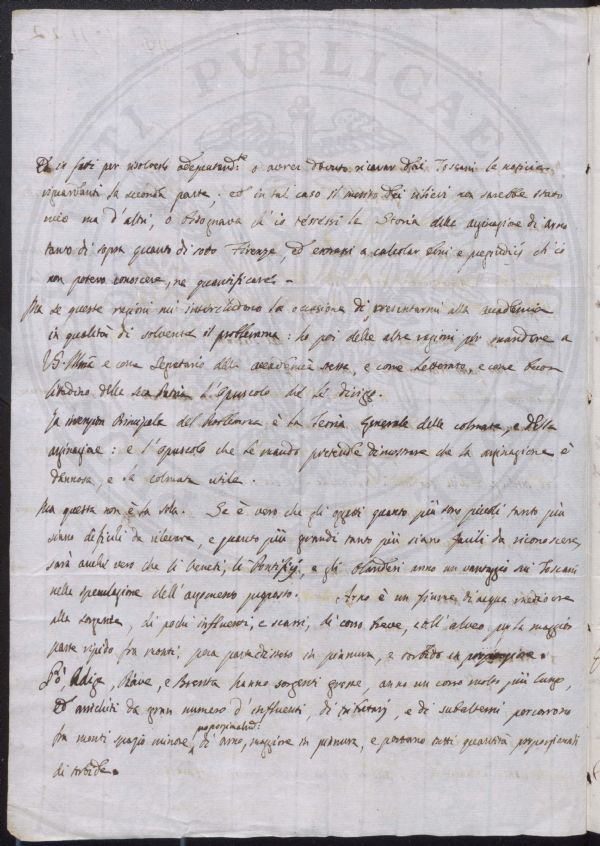 Et in fatti per risolverlo adequatamte o avrei dovuto ricavar dai Toscani le notizie
riguardanti la seconda parte; ed in tal caso il merito dei rilievi non sarebbe stato
mio ma d'altri, o bisognava ch'io tessessi la Storia della arginazione di Arno
tanto di sopra quanto di sotto Firenze, ed entrassi a calcolar beni e pregiudizj ch'io
non potevo conoscere, ne quantificare.
Ma se queste ragioni mi intercludono la occasione di presentarmi alla academia
in qualità di solvente il problemma: ho poi delle altre ragioni per mandare a
VS Illma e come Segretario della accademia stessa, e come Letterato, e come buon
Cittadino della sua Patria L'Opuscolo che le dirigo.
La inversion Principale del Problemma è la Teoria Generale delle colmate, e della
arginazione: e l'opuscolo che le mando pretende dimostrare che la arginazione è
dannosa, e la colmata utile.
Ma questa non è la sola. Se è vero che gli oggetti quanto più sono piccoli tanto più
siano difficili da rilevare, e quanto più grandi tanto più siano facili da riconoscere,
sarà anche vero che li Veneti, li Pontifizj, e gli Olandesi anno un vantaggio sui Toscani
nella speculazione dell'argomento proposto. Arno è un fiume di acqua mediocre
alla sorgente, di pochi influenti, e scarsi, di corso breve, coll'alveo per la maggior
parte ripido fra monti, poca parte disteso in pianura, e torbido in proporzione.
Pò, Adige, Piave, e Brenta hanno sorgenti grosse, anno un corso molto più lungo,
ed arrichiti da gran numero d'influenti, di tributarj, e di subalterni percorrono
fra monti spazio minore proporzionatte di Arno, maggiore in pianura, e portano tutti quantità proporzionati
di torbide.